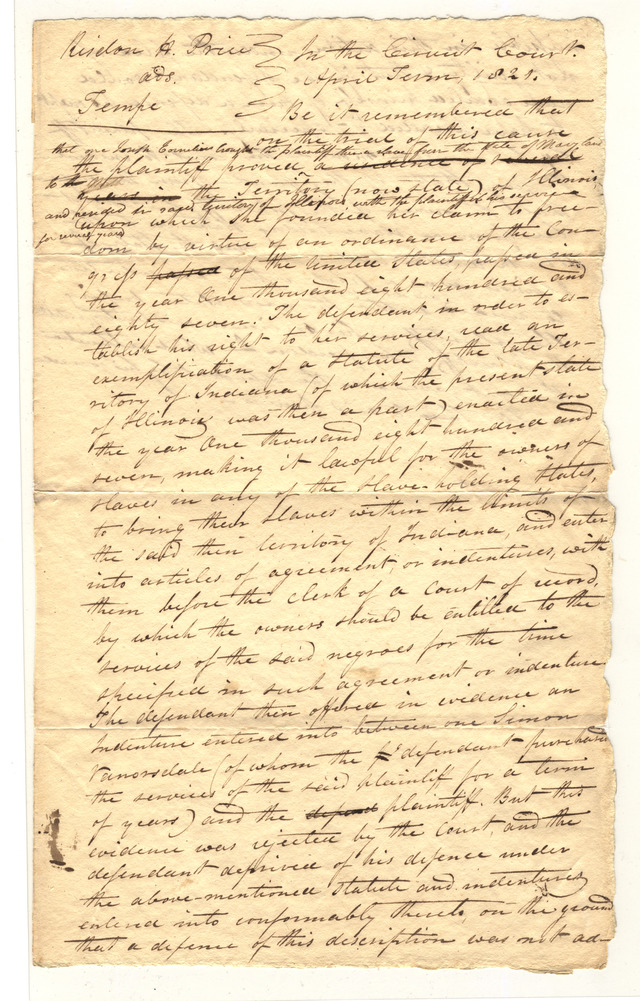 Risdon H. Price
ads.
Tempe
In the Circuit Court.
April Term, 1821.
Be it remembered that
on the trial of this cause
that one Joseph Cornelius brought the plaintiff then a slave from the State of Maryland
the plaintiff proved a residence of several
to the
years in the Territory (now state) of Illinois,
and resided in said territory of Illinois with the plaintiff in his service
upon which she founded her claim to free-
for several years
dom by virtue of an ordinance of the Con-
gress passed of the United States, passed in
the year One thousand eight hundred and
eighty seven. The defendant, in order to es-
tablish his right to her services, read an
exemplification of a statute of the late Ter-
ritory of Indiana (of which the present state
of Illinois was then a part) enacted in
the year One thousand eight hundred and
seven, making it lawful for the owners of
slaves in any of the slave-holding states,
to bring their slaves within the limits of
the said then territory of Indiana, and enter
into articles of agreement, or indentures, with
them before the clerk of a court of record,
by which the owners should be entitled to the
services of the said negroes for the time
specified in such agreement or indenture.
The defendant then offered in evidence an
Indenture entered into between one Simon
Vanorsdale (of whom the defendant purchased
the services of the said plaintiff for a term
of years) and the plaintiff. But this
evidence was rejected by the Court, and the
defendant deprived of his defence under
the above-mentioned statute and indentures
entered into conformably thereto, on the ground
that a defence of this description was not ad-